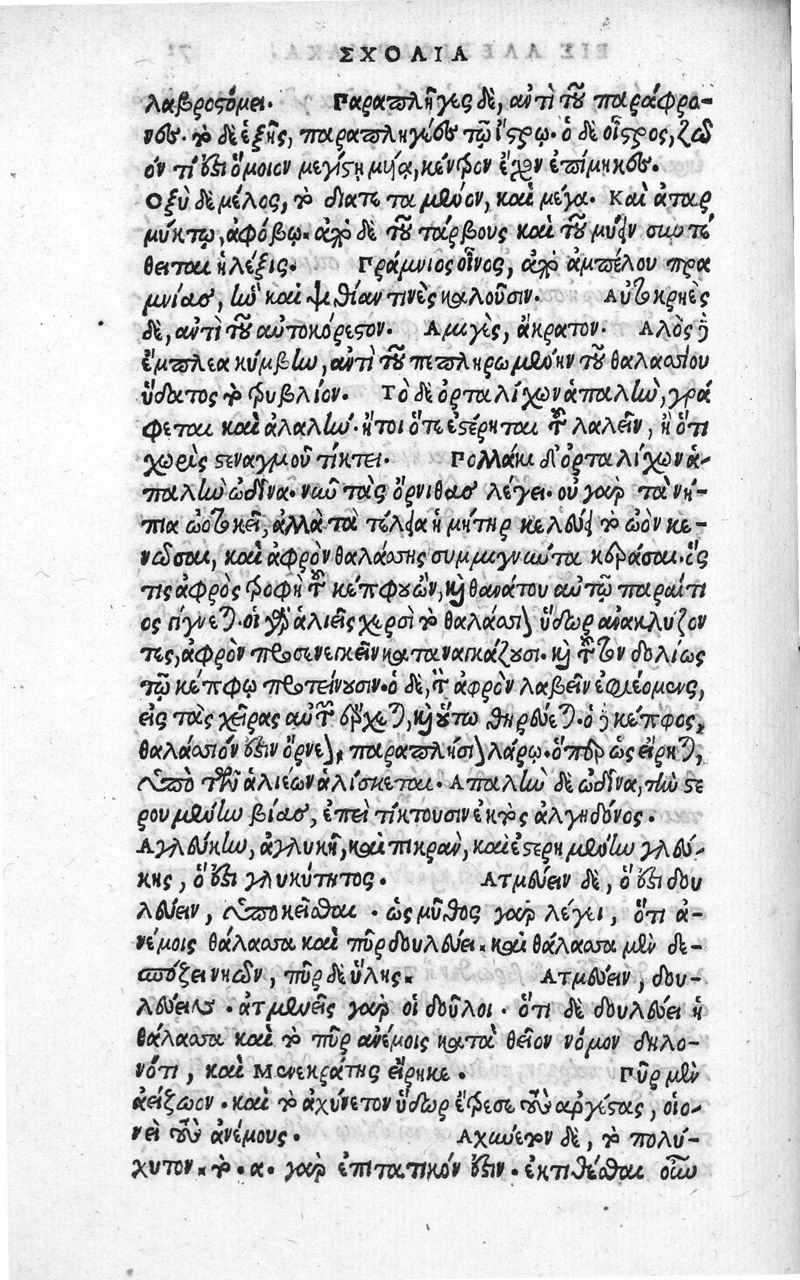 ΣΧΟΛΙΑ
λαβροστόμει. Παραπλῆγες δὲ, ἀντὶ τοῦ παράφρο-
νας. τὸ δὲ ἑξῆς, παραπλῆγας τῷ οἴστρῳ. ὁ δὲ οἶστρος, ζῶ
όν τί ἐστι ὅμοιον μεγίστῃ μυίᾳ, κέντρον ἔχον ἐπίμηκες.
Οξὺ δὲ μέλος, τὸ διατεταμένον, καὶ μέγα. Καὶ ἀταρ
μύκτῳ, ἀφόβῳ. ἀπὸ δὲ τοῦ τάρβους καὶ τοῦ μύειν συντέ
θειται ἡ λέξις. Πράμνιος οἶνος, ἀπὸ ἀμπέλου πρα
μνίας, ἣν καὶ ψιθίαν τινὲς καλοῦσιν. Αὐτοκρηὲς
δὲ, ἀντὶ τοῦ αὐτοκόρεστον. Αμιγὲς, ἄκρατον. Αλὸς δὲ
ἔμπλεα κύμβην, ἀντὶ τοῦ πεπληρωμένην τοῦ θαλασσίου
ὕδατος τὸ τρυβλίον. Τὸ δὲ ὀρταλίχων ἁπαλὴν, γρά
φεται καὶ ἀλαλὴν. ἤτοι ὅτι ἐστέρηται τοῦ λαλεῖν, ἢ ὅτι
χωρὶς στεναγμοῦ τίκτει. Πολλάκι δ' ὀρταλίχων ἁ-
παλὴν ὠδῖνα. νῦν τὰς ὄρνιθας λέγει. οὐ γὰρ τὰ νή-
πια ὠοτοκεῖ, ἀλλὰ τὰ τέλεια ἡ μήτηρ κελεύει τὸ ὠὸν κε-
νῶσαι, καὶ ἀφρὸν θαλάσσης συμμιγνῶντα κεράσαι. ὅς
τις ἀφρὸς τροφὴ τῶν κέπφων ὢν, καὶ θανάτου αὐτῷ παραίτι
ος γίγνεται. οἱ γὰρ ἁλιεῖς χερσὶ τὸ θαλάσσιον ὕδωρ ἀνακλύζον
τες, ἀφρὸν προσενεγκεῖν καταναγκάζουσι. καὶ τοῦτον δολίως
τῷ κέπφῳ προτείνουσιν. ὁ δὲ, τὸν ἀφρὸν λαβεῖν ἐφιέμενος,
εἰς τὰς χεῖρας αὐτῶν ἔρχεται, καὶ οὕτω θηρεύεται. ὁ δὲ κέπφος,
θαλάσσιόν ἐστιν ὄρνεον, παραπλήσιον λάρῳ. ὅπερ ὡς εἴρηται,
ὑπὸ τῶν ἁλιέων ἁλίσκεται. Απαλὴν δὲ ὠδῖνα, τὴν στε
ρουμένην βίας, ἐπεὶ τίκτουσιν ἐκτὸς ἀλγηδόνος.
Αγλεύκην, ἀγλυκῆ, καὶ πικρὰν, καὶ ἐστερημένην γλεύ-
κης, ὅ ἐστι γλυκύτητος. Ατμεύειν δὲ, ὅ ἐστι δου
λεύειν, ὑποκεῖσθαι. ὡς μῦθος γὰρ λέγει, ὅτι ἀ-
νέμοις θάλασσα καὶ πῦρ δουλεύει. καὶ θάλασσα μὲν δε-
σπόζει νηῶν, πῦρ δὲ ὕλης. Ατμεύειν, δου-
λεύειν. ἀτμένεις γὰρ οἱ δοῦλοι. ὅτι δὲ δουλεύει ἡ
θάλασσα καὶ τὸ πῦρ ἀνέμοις κατὰ θεῖον νόμον δηλο-
νότι, καὶ Μενεκράτης εἴρηκε. Πῦρ μὲν
ἀείζωον. καὶ τὸ ἀχύνετον ὕδωρ ἔτρεσε τοὺς ἀργέστας, οἱο-
νεὶ τοὺς ἀνέμους. Αχύνετον δὲ, τὸ πολύ-
χυτον. τὸ. α. γὰρ ἐπιτατικόν ἐστιν. ἐκτιθέσθαι οὕτω